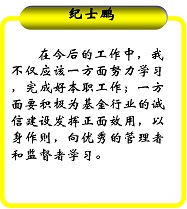 纪士鹏
在今后的工作中，我
不仅应该一方面努力学习
，完成好本职工作；一方
面要积极为基金行业的诚
信建设发挥正面效用，以
身作则，向优秀的管理者
和监督者学习。